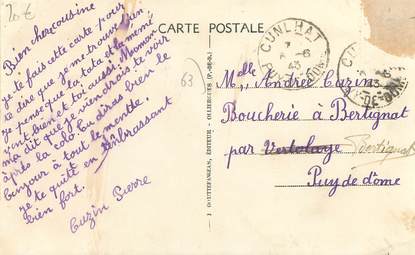 20€
CARTE POSTALE
Bien cher cousine
je te fais cette carte pour
te dire que je me trouve bien.
je pense que la tata et la mémé
vont bien et toi aussi. Maman
m'a dit que je viendrais te voir
après la colo. Tu diras bien le
bonjour à tout le monde.
je te quitte en t'enbrassant
bien fort.
Cuzin Pierre
63
J. GOUTTEFANGEAS, ÉDITEUR - OLLIERGUES (P.-DE-D.)
CUNLHAT
7 -6
43
PUY-DE-DOME
Mlle Andrée Cuzin
Boucherie à Bertignat
par Vertolaye Bertignat
Puy de dôme